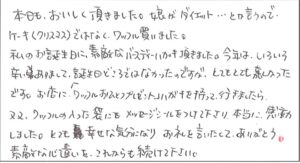 本日も、おいしく頂きました。娘がダイエット…と言うので
ケーキ(クリスマス)ではなく、ワッフル買いました。
私のお誕生日に、素敵なバースデーハガキ頂きました。今年は、いろいろ
有り、誕生日どころではなかったのですが、とてもとても嬉しかった
です。お店に、ワッフルおひとつプレゼントのハガキを持って、行きましたら
又又、ワッフルの入った袋にもメッセージシールをつけて下さり本当に、感動
しました。とても幸せな気分になり お礼を言いたくて。ありがとう
素敵な心遣いを、これからも続けて下さい。